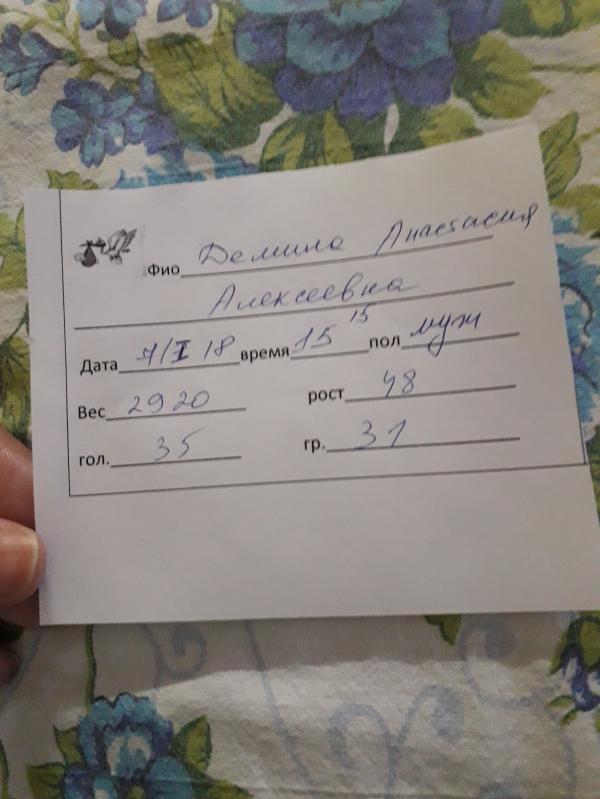 ФИО Демина Анастасия
Алексеевна
Дата 7/I 18 время 15 15 пол муж
Вес 2920 рост 48
гол. 35 гр. 31